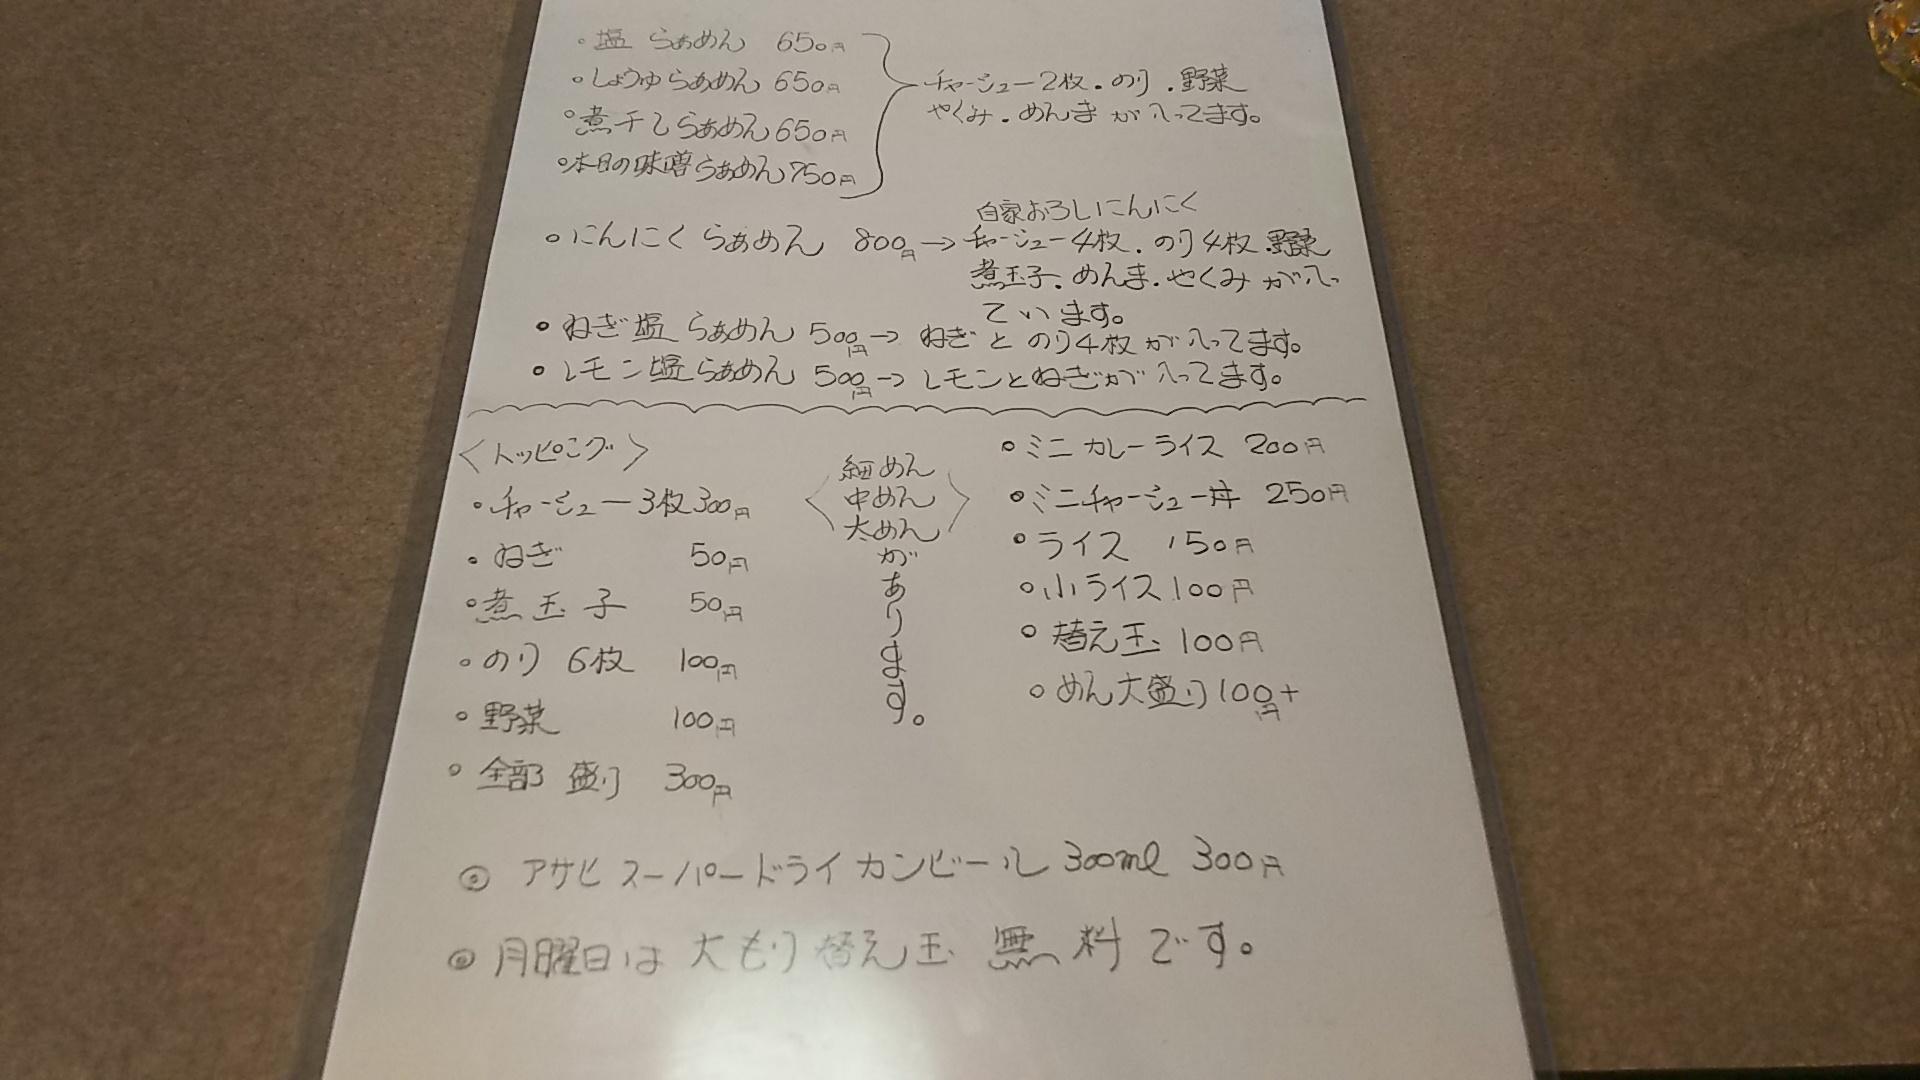 ・塩 らぁめん 650円
・しょうゆらぁめん 650円
・煮干しらぁめん 650円
・本日の味噌らぁめん 750円
チャーシュー2枚.のり.野菜
やくみ.めんま が入ってます。
・にんにく らぁめん 800円→
自家おろしにんにく
チャーシュー4枚.のり4枚.野菜
煮玉子.めんま.やくみ が入っ
ています。
・ねぎ塩 らぁめん 500円→ ねぎ と のり4枚が入ってます。
・レモン塩らぁめん 500円→ レモンとねぎが 入ってます。
〈トッピング〉
・チャーシュー3枚300円
・ねぎ 50円
・煮玉子 50円
・のり 6枚 100円
・野菜 100円
・全部盛り 300円
〈細めん
中めん
太めん〉
があります。
・ミニカレーライス 200円
・ミニチャーシュー丼 250円
・ライス 150円
・小ライス 100円
・替え玉 100円
・めん大盛り100円+
◎ アサヒ スーパードライ カンビール 300ml 300円
◎ 月曜日は 大もり 替え玉 無料です。